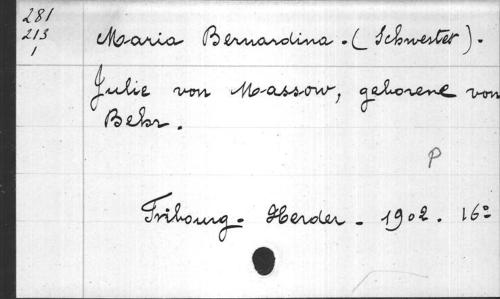 281
213
1
Maria Bernardina. (Schwester).
Julie von Massow, geborene von
Behr.
P
Fribourg. Herder. 1902. 16º